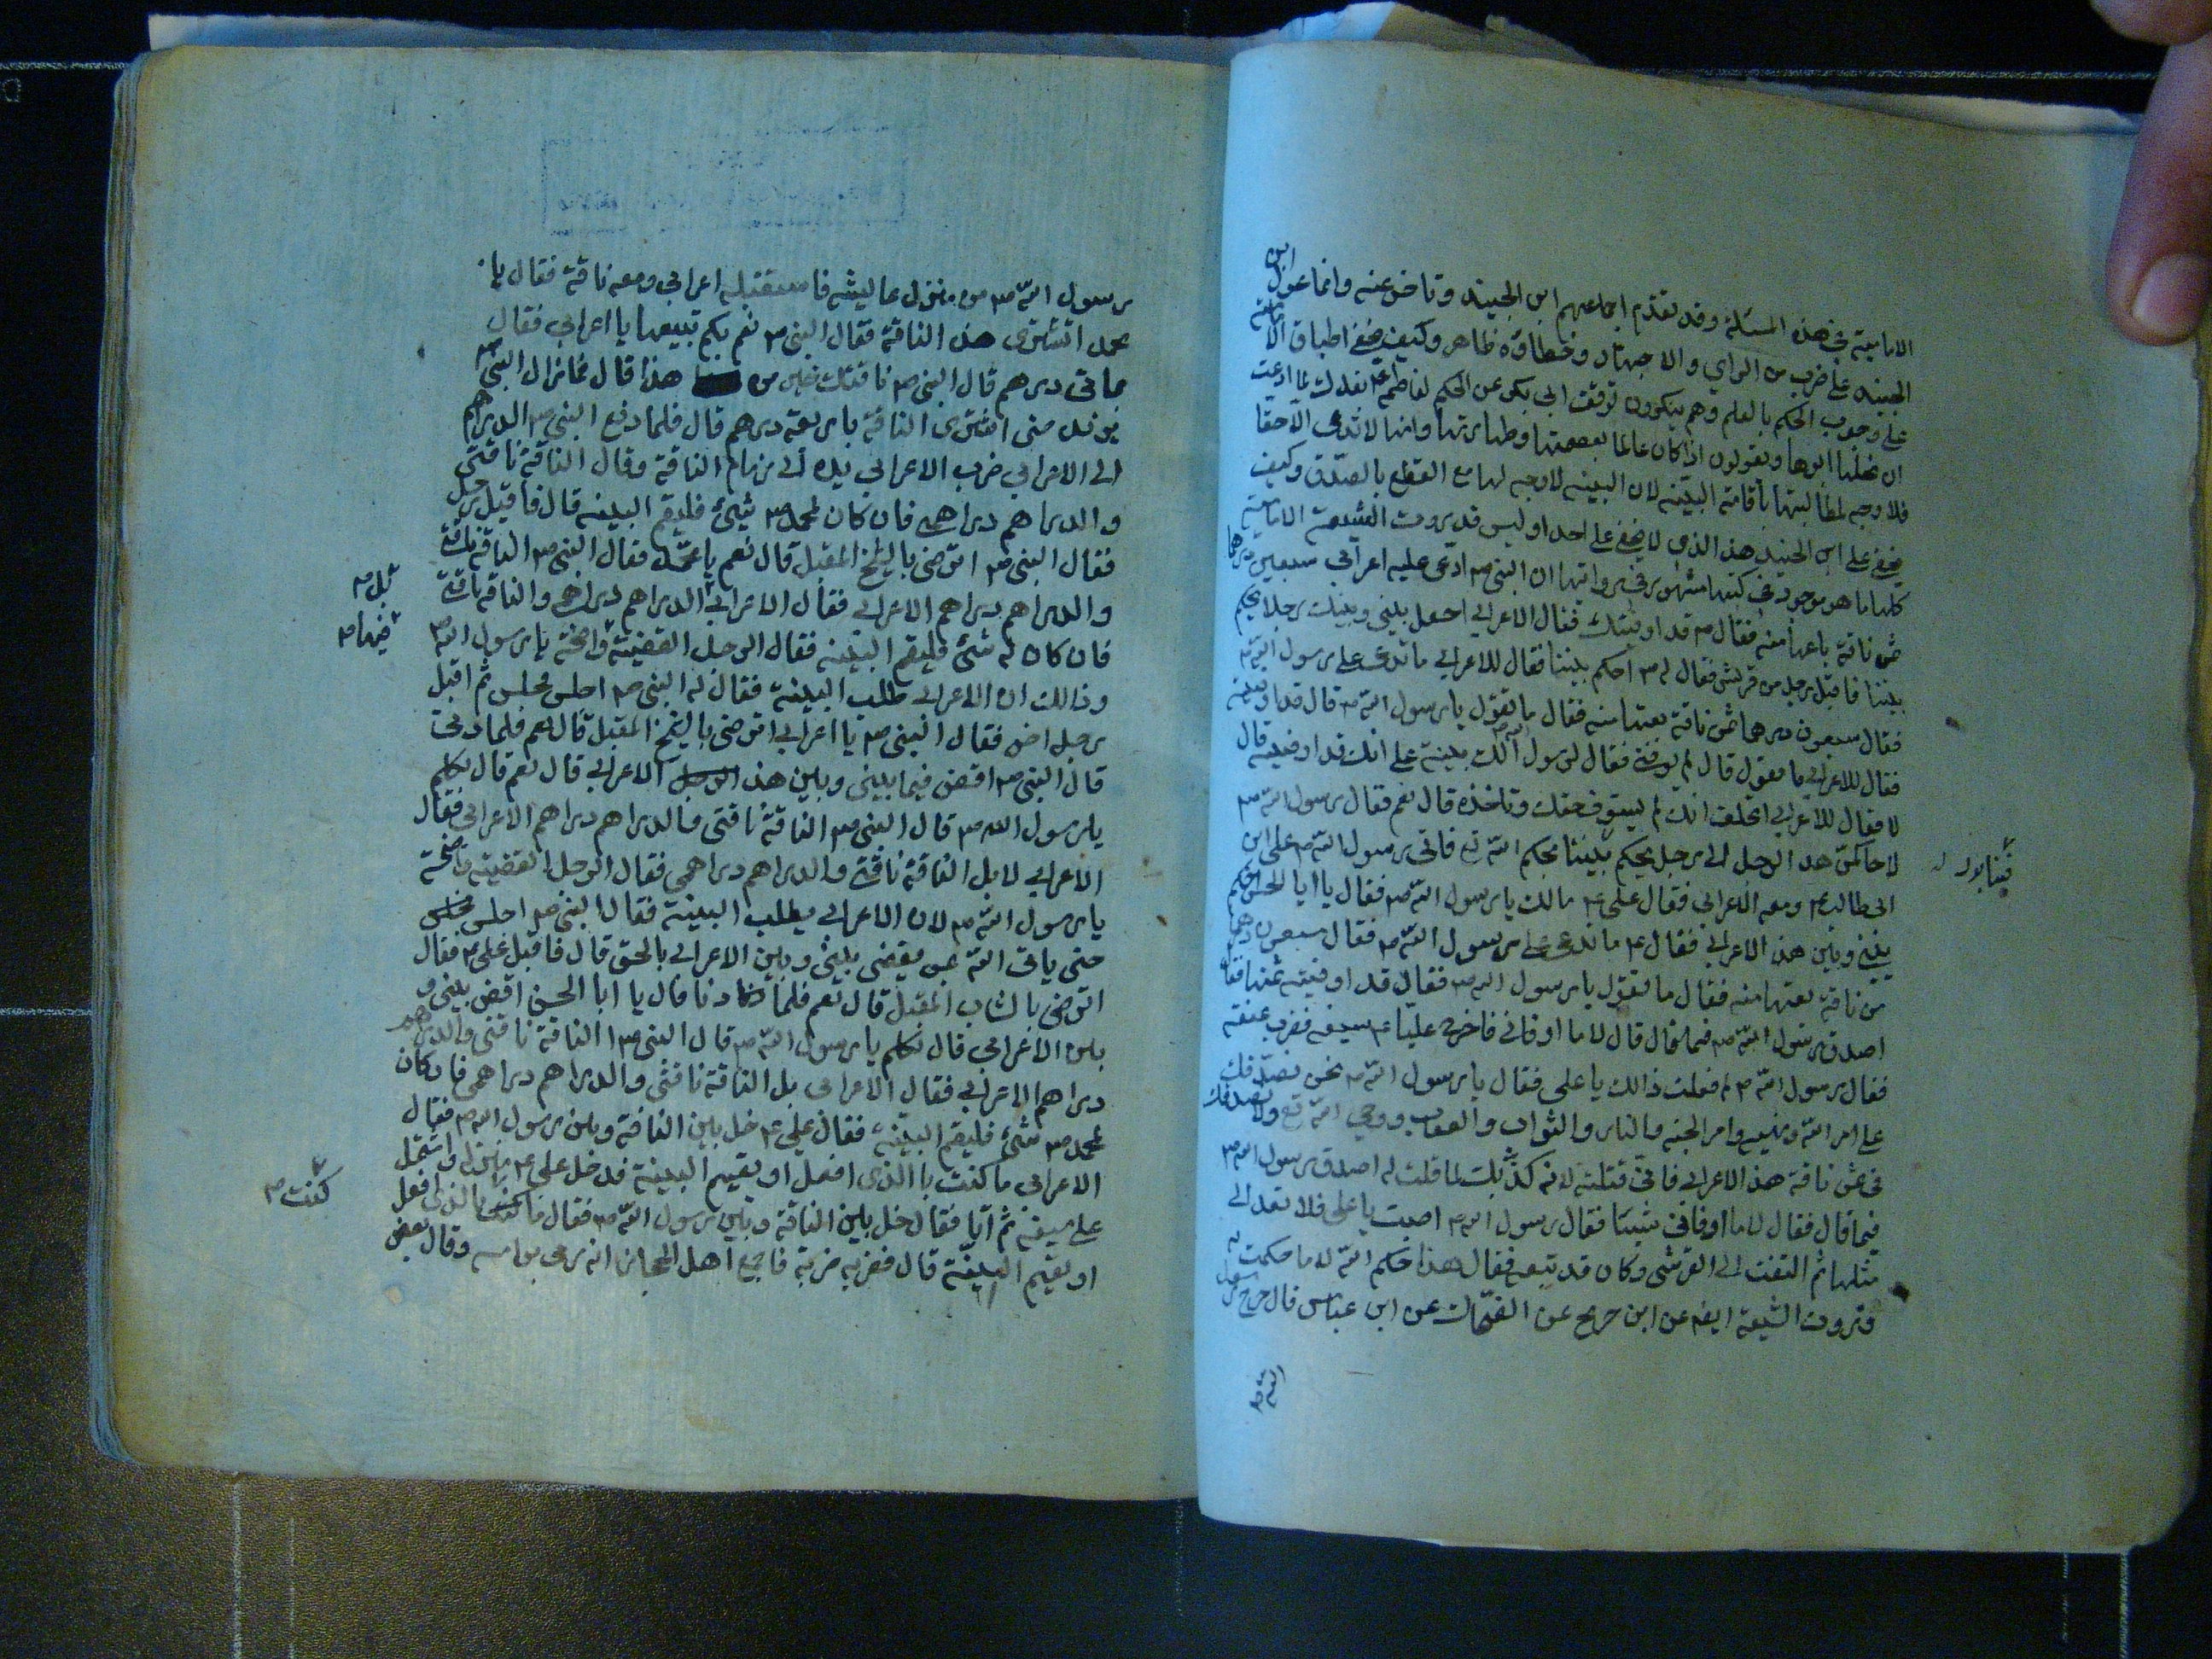 الامامية في هذه المسئلة وقد تقدم اجماعهم ابن الجنيد وتاخر عنه وانما عول ابن
الجنيد على ضرب من الراي والاجتهاد وخطاؤه ظاهر وكيف يخفى اطباق الامامية
على وجوب الحكم بالعلم وهم ينكرون توقف ابي بكر عن الحكم لفاطمة ع بفدك لما ادعت
ان نحلها ابوها ويقولون اذا كان عالما بعصمتها وطهارتها وانها لا تدعي الا حقا
فلا وجه لمطالبتها باقامة البينة لان البينة لا وجه لها مع القطع بالصدق وكيف
يخفى على ابن الجنيد هذا الذي لا يخفى على احد او ليس قد روت الشيعة الامامية
كلها ما هو موجود في كتبها مشهور في رواتها ان النبي ص ادعى عليه اعرابي سبعين درهما
ثمن ناقة باعها منه فقال ص قد اوفيتك فقال الاعرابي اجعل بيني وبينك رجلا يحكم
بيننا فاقبل رجل من قريش فقال له ص احكم بيننا فقال للاعرابي ما تدعي على رسول الله ص
فقال سبعون درهما ثمن ناقة بعتها منه فقال ما تقول يا رسول الله ص قال قد اوفيته
فقال للاعرابي ما تقول قال لم يوفني فقال لرسول الله ص الك بينة على انك قد اوفيته قال
لا فقال للاعرابي اتحلف انك لم تستوف حقك وتاخذه قال نعم فقال رسول الله ص
لاحاكمن هذا الرجل الى رجل يحكم بيننا بحكم الله تع فاتى رسول الله ص على ابن
ابى طالب ع ومعه الاعرابي فقال علي ع مالك يا رسول الله ص فقال يا ابا الحسن احكم
بيني وبين هذا الاعرابي فقال ع ما تدعى على رسول الله ص فقال سبعون درهما
من ناقة بعتها منه فقال ما تقول يا رسول الله ص فقال قد اوفيته ثمنها فقال
اصدق رسول الله ص فيما قال قال لا ما اوفاني فاخرج عليا ع سيفه فضرب عنقه
فقال رسول الله ص لم فعلت ذالك يا علي فقال يا رسول الله ص نحن نصدقك
على امر الله ونهيه وامر الجنة والنار والثواب والعقاب ووحي الله تع ولا نصدقك
في ثمن ناقة هذا الاعرابي فاني قتلته لانه كذبك لما قلت له اصدق رسول الله ص
فيما قال فقال لا ما اوفاني شيئا فقال رسول الله ص اصبت يا علي فلا تعد الى
مثلها ثم التفت الى القرشي وكان قد تبعه فقال هذا حكم الله لا ما حكمت به
وتروت الشيعة ايض عن ابن جريح عن الضحاك عن ابن عباس قال خرج رسول
الله ص
رسول الله ص من منزل عايشه فاستقبله اعرابي ومعه ناقة فقال يا
محمد اتشترى هذه الناقة فقال النبي ص نعم بكم تبيعها يا اعرابي فقال
بماتى درهم قال النبي ص ناقتك خير من هذا قال فما زال النبي ص
يزيد حتى اشترى الناقة باربعة درهم قال فلما دفع النبي ص الدراهم
الى الاعرابي ضرب الاعرابي يده الى زمام الناقة وقال الناقة ناقتي
والدراهم دراهمي فان كان لمحمد ص شيئ فليقم البينه قال فاقبل رجل
فقال النبي ص اترضى بالشيخ المقبل قال نعم يا محمد فقال النبي ص الناقة ناقتي
والدراهم دراهم الاعرابي فقال الاعرابي الدراهم دراهمي والناقة ناقتي
بل
فان كان له شئ فليقم البينه فقال الرجل القضية واضحة يا رسول الله ص
فيها ص
وذالك ان الاعرابي طلب البينة فقال له النبي ص اجلس فجلس ثم اقبل
رجل اخر فقال النبي ص يا اعرابي اترضى بالشيخ المقبل قال نعم فلما دنى
قال النبي ص اقض فيما بيني وبين هذ الرجل الاعرابي قال نعم قال تكلم
يا رسول الله ص قال النبي ص الناقة ناقتى والدراهم دراهم الاعرابي فقال
الاعرابي لا بل الناقة ناقتي والدراهم دراهمي فقال الرجل القضية واضحة
يا رسول الله ص لان الاعرابي يطلب البينة فقال النبي ص اجلس فجلس
حتى ياتى الله بمن يقضى بيني وبين الاعرابي بالحق قال فاقبل علي ع فقال
اترضى بالشاب المقبل قال نعم فلما دنا قال يا ابا الحسن اقض بيني و
بين الاعرابي قال تكلم يا رسول الله ص قال النبي ص الناقة ناقتى والدراهم
دراهم الاعرابي فقال الاعرابي بل الناقة ناقتى والدراهم دراهمى فان كان
لمحمد ص شئ فليقم البينة فقال علي ع خل بين الناقة وبين رسول الله ص فقال
الاعرابي ما كنت باالذى افعل او تقيم البينة فدخل علي ع منزله واشتمل
على سيفه ثم اتا فقال خل بين الناقة وبين رسول الله ص فقال ما كنت بالذى افعل
كنت ص
او تقيم البينة قال فضربه ضربة فاجمع اهل الحجاز انه رمى براسه وقال بعض